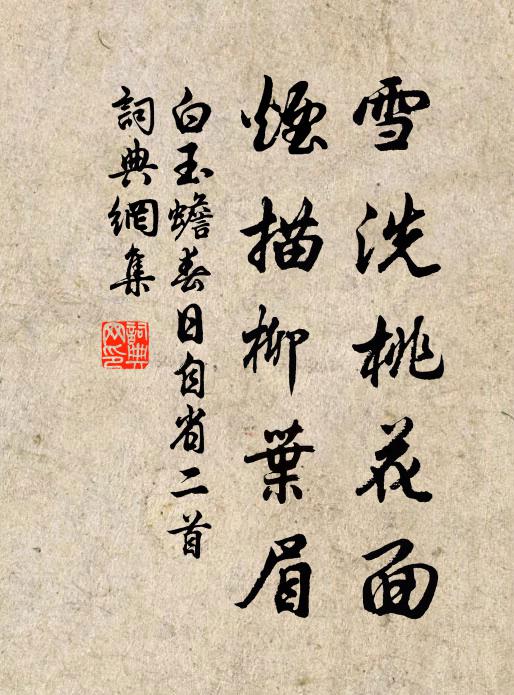 雪洗桃花面
煙描柳葉眉
白玉蟾春日自省二首
詞典網集
詞典網印